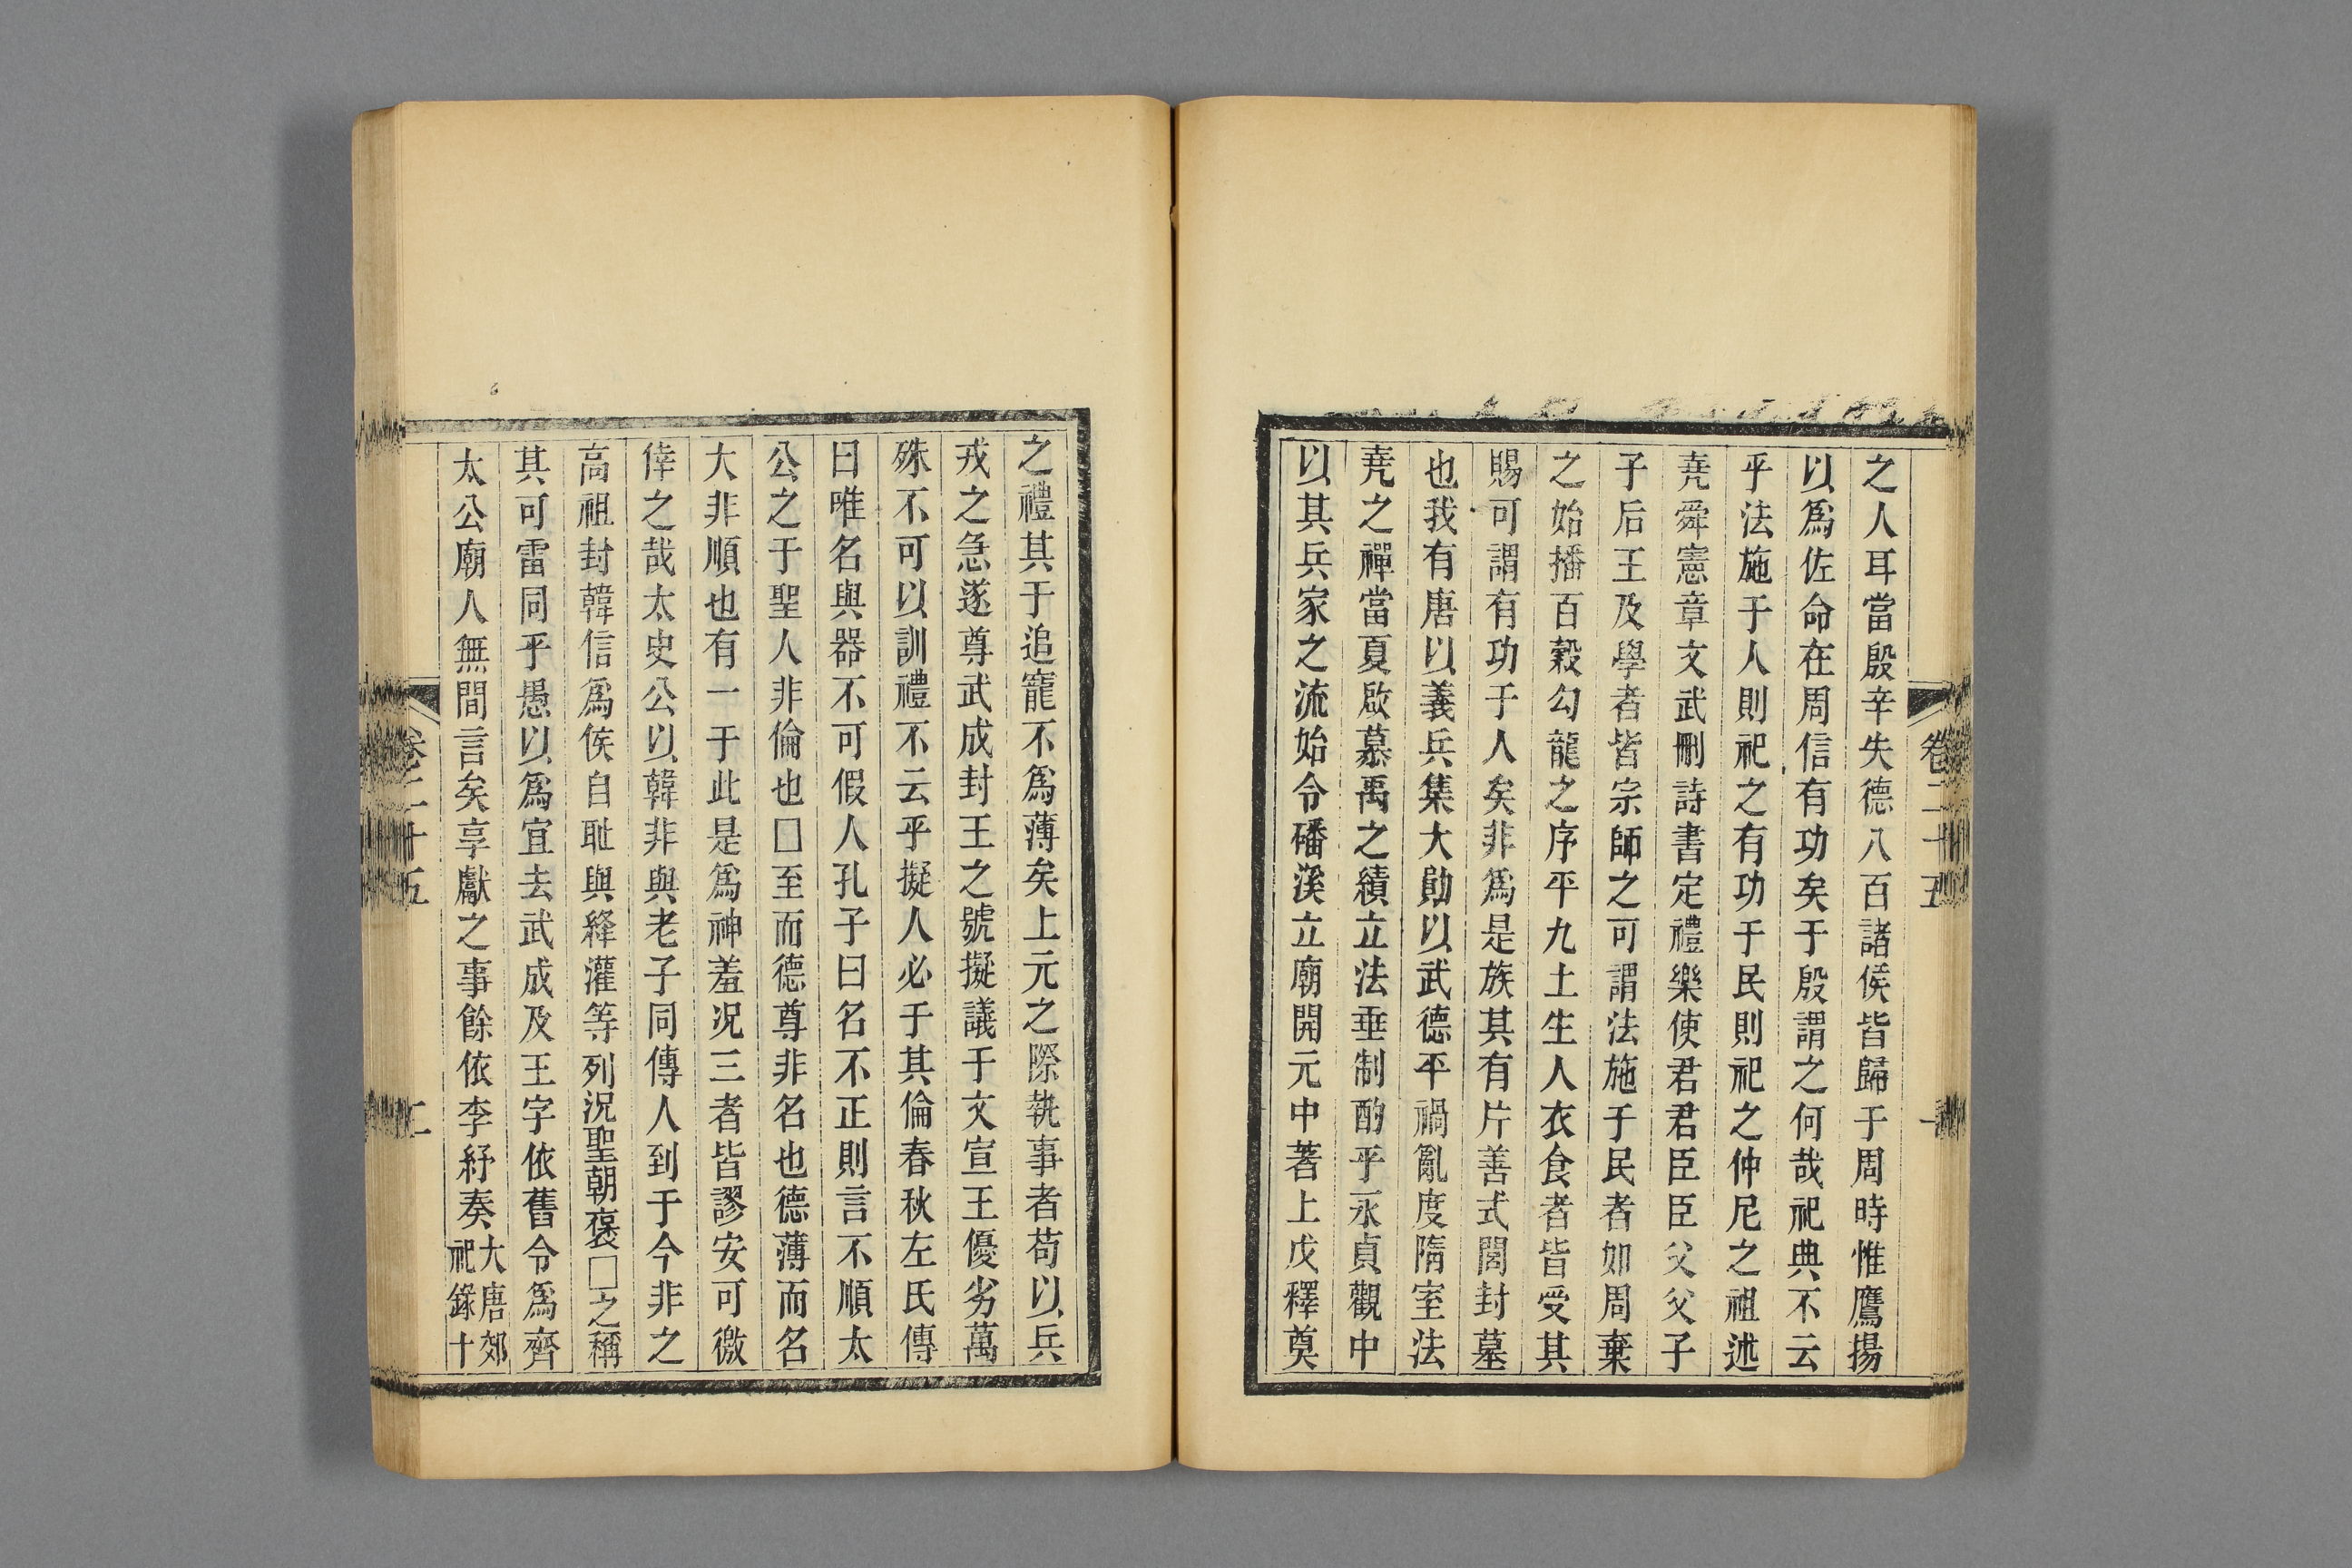 卷二十五
之人耳當殷辛失德八百諸侯皆歸于周時惟鷹揚
以爲佐命在周信有功矣于殷謂之何哉祀典不云
乎法施于人則祀之有功于民則祀之仲尼之祖述
堯舜憲章文武刪詩書定禮樂使君君臣臣父父子
子后王及學者皆宗師之可謂法施于民者如周棄
之始播百穀勾龍之序平九土生人衣食者皆受其
賜可謂有功于人矣非爲是族其有片善式閭封墓
也我有唐以義兵集大勛以武德平禍亂度隋室法
堯之禪當夏啟慕禹之績立法垂制酌乎永貞觀中
以其兵家之流始令磻溪立廟開元中著上戊釋奠
之禮其于追寵不爲薄矣上元之際執事者苟以兵
戎之急遂尊武成封王之號擬議于文宣王優劣萬
殊不可以訓禮不云乎擬人必于其倫春秋左氏傳
曰唯名與器不可假人孔子曰名不正則言不順太
公之于聖人非倫也□至而德尊非名也德薄而名
大非順也有一于此是爲神羞况三者皆謬安可徼
倖之哉太史公以韓非與老子同傳人到于今非之
高祖封韓信爲侯自耻與絳灌等列況聖朝褒□之稱
其可雷同乎愚以爲宜去武成及王字依舊令爲齊
太公廟人無間言矣享獻之事餘依李紓奏大唐郊
祀錄十
卷二十五
二